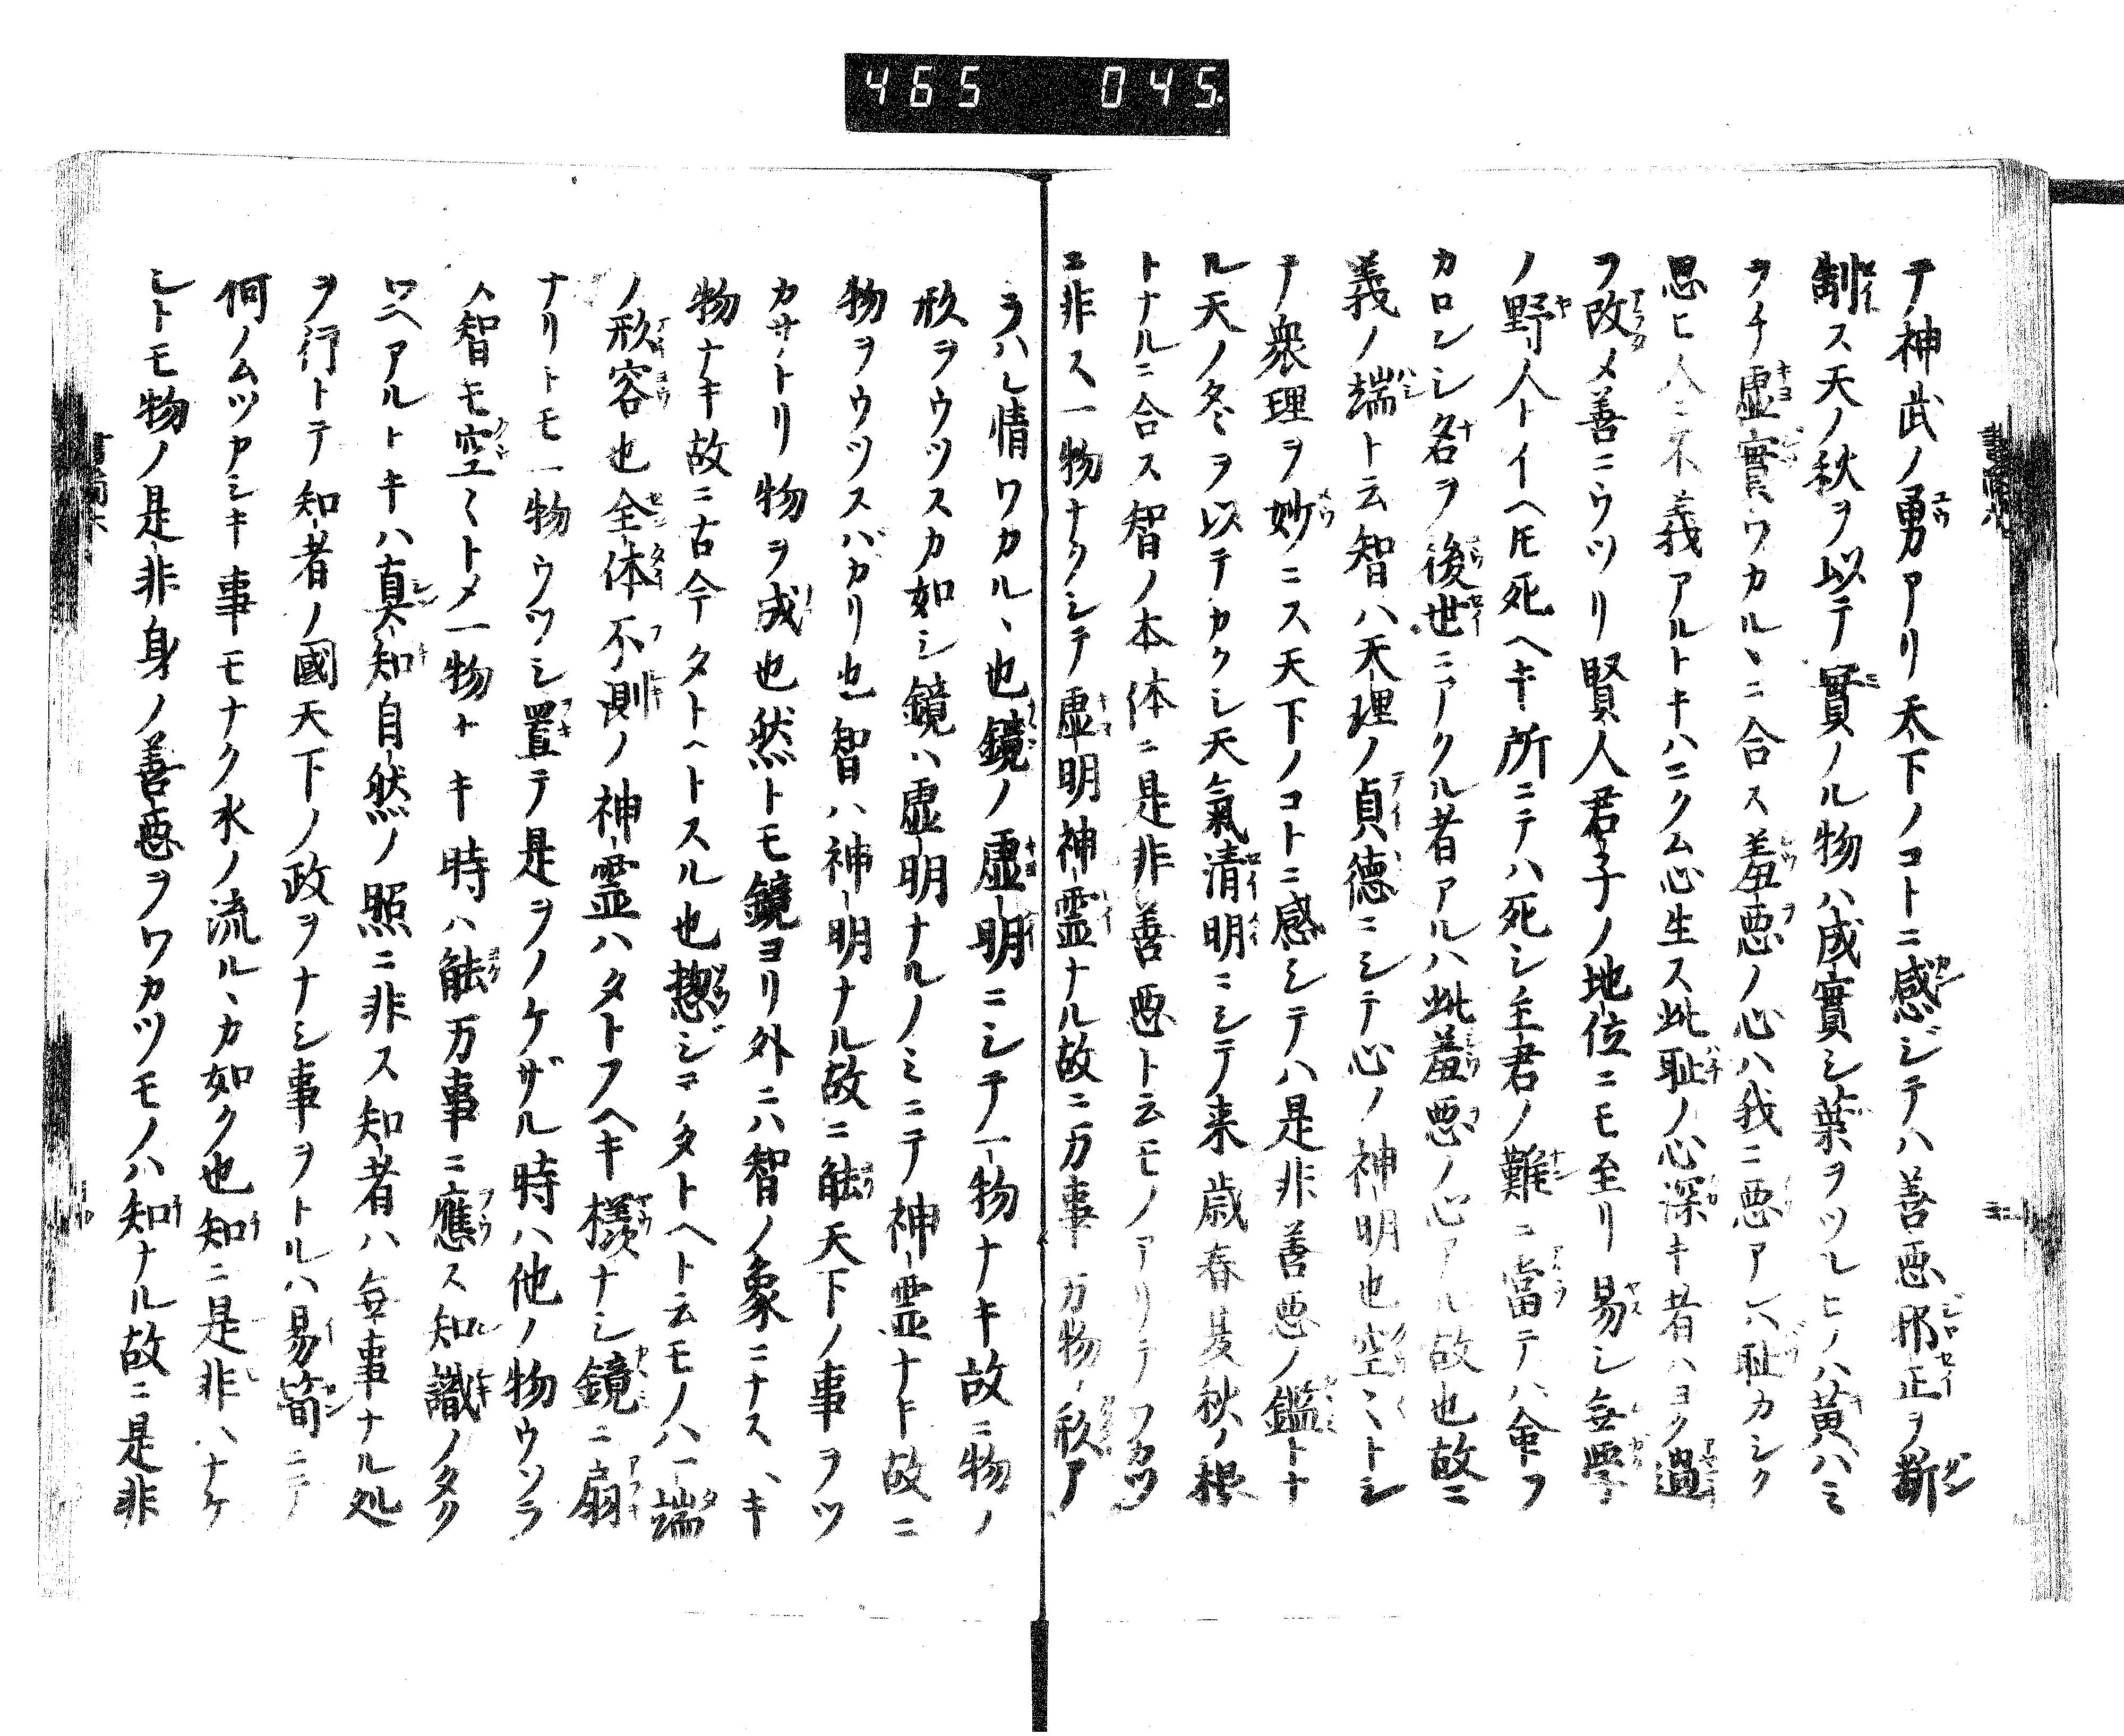 465 045.
テ神武ノ勇アリ天下ノコトニ感ジテハ善悪邪正ヲ断
制ス天ノ秋ヲ以テ實ノル物ハ成實シ葉ヲツレヒノハ黄ハミ
ヲチ虚實ワカルヽニ合ス羞悪ノ心ハ我ニ悪アレハ耻カシク
思ヒ人ニ不義アルトキハニクム心生ス此耻ノ心深キ者ハヨク過
ヲ改メ善ニウツリ賢人君子ノ地位ニモ至リ易シ無學
ノ野人トイヘ𪜈死ヘキ所ニテハ死シ主君ノ難ニ當テハ命ヲ
カロンシ名ヲ後世ニアクル者アルハ此羞悪ノ心アル故也故ニ
義ノ端ト云智ハ天理ノ貞德ニシテ心ノ神明也空〻トシ
テノ衆理ヲ妙ニス天下ノコトニ感シテハ是非善悪ノ鑑トナ
ル天ノ冬ヲ以テカクシ天氣清明ニシテ来歳春夏秋ノ根
トナルニ合ス智ノ本体ニ是非善悪ト云モノアリテワカツ
ニ非ス一物ナクシテ虚明神霊ナル故ニ万事万物ノ形ア
ラハレ情ワカルヽ也鏡ノ虚明ニシテ一物ナキ故ニ物ノ
形ヲウツスカ如シ鏡ハ虚明ナルノミニテ神霊ナド故ニ
物ヲウツスバカリ也智ハ神明ナル故ニ能天下ノ事ヲツ
カサトリ物ヲ成也然トモ鏡ヨリ外ニハ智ノ象ニナスヽキ
物ナキ故ニ古今タトヘトスル也惣ジテタトヘト云モノハ一端
ノ形容也全体不測ノ神霊ハタトフヘキ樣ナシ鏡ニ扇
ナリトモ一物ウツシ置テ是ヲノケザル時ハ他ノ物ウツラ
ス智モ空〻トメ一物ナキ時ハ能万事ニ應ス知識ノタク
ワヘアルトキハ真知自然ノ照ニ非ス知者ハ無事ナル処
ヲ行トテ知者ノ國天下ノ政ヲナシ事ヲトルハ易簡ニテ
何ノムツカシキ事モナク水ノ流ルヽカ如ク也知ニ是非ハナケ
レトモ物ノ是非身ノ善悪ヲワカツモノハ知ナル故ニ是非